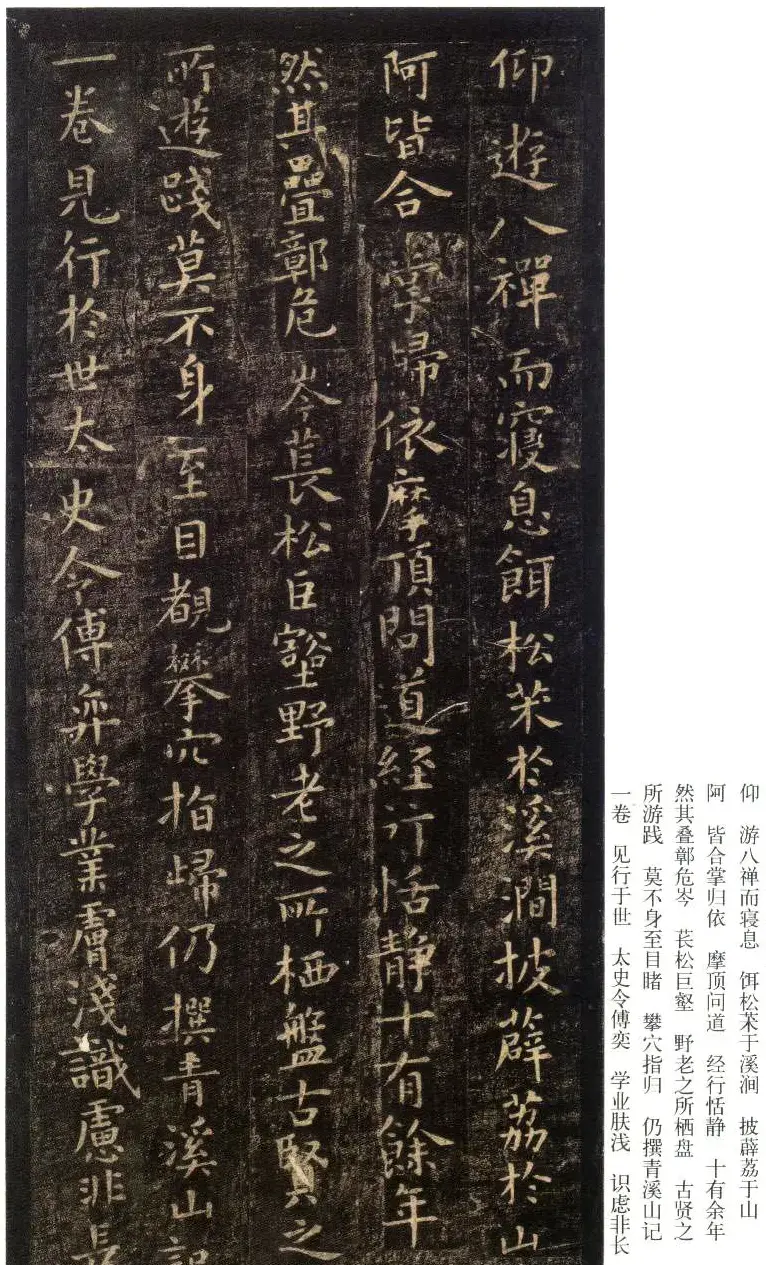 仰遊八禪而寢息餌松茱於溪澗披薜荔於山
阿皆合掌歸依摩頂問道經行恬靜十有餘年
然其疊鄣危岑萇松巨壑野老之所栖盤古賢之
所遊踐莫不身至目覩攀穴指歸仍撰青溪山記
一卷見行於世太史令傅弈學業膚淺識慮非長
仰 游八禅而寝息 饵松茱于溪涧 披薜荔于山
阿 皆合掌归依 摩顶问道 经行恬静 十有余年
然其叠鄣危岑 苌松巨壑 野老之所栖盘 古贤之
所游践 莫不身至目睹 攀穴指归 仍撰青溪山记
一卷 见行于世 太史令傅奕 学业肤浅 识虑非长